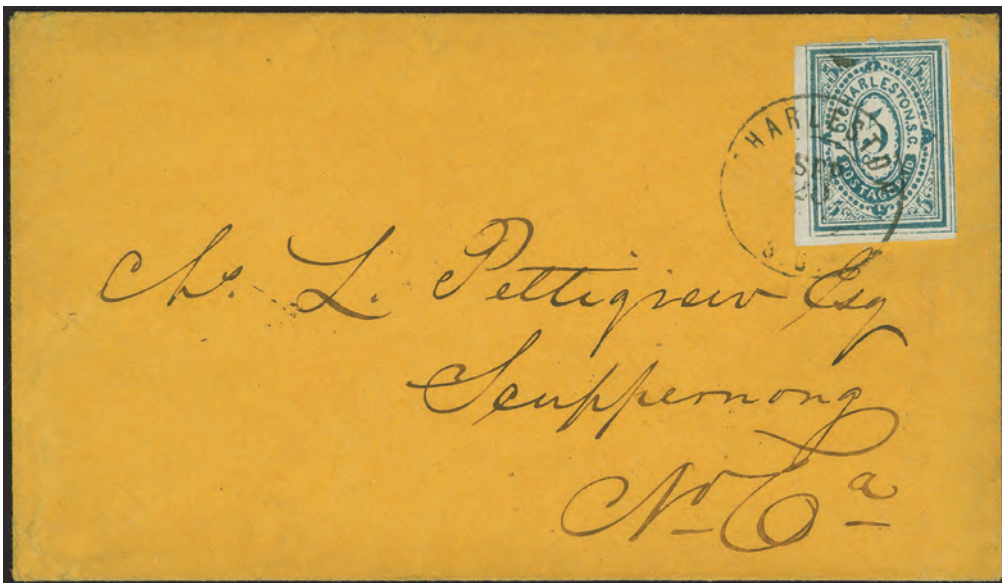 P.O. CHARLESTON. S.C.
5
POSTAGE PAID
5 5
CHARLESTO
SEP
20
S.C.
Chs. L. Pettigrew Esq
Scuppernong
No Ca